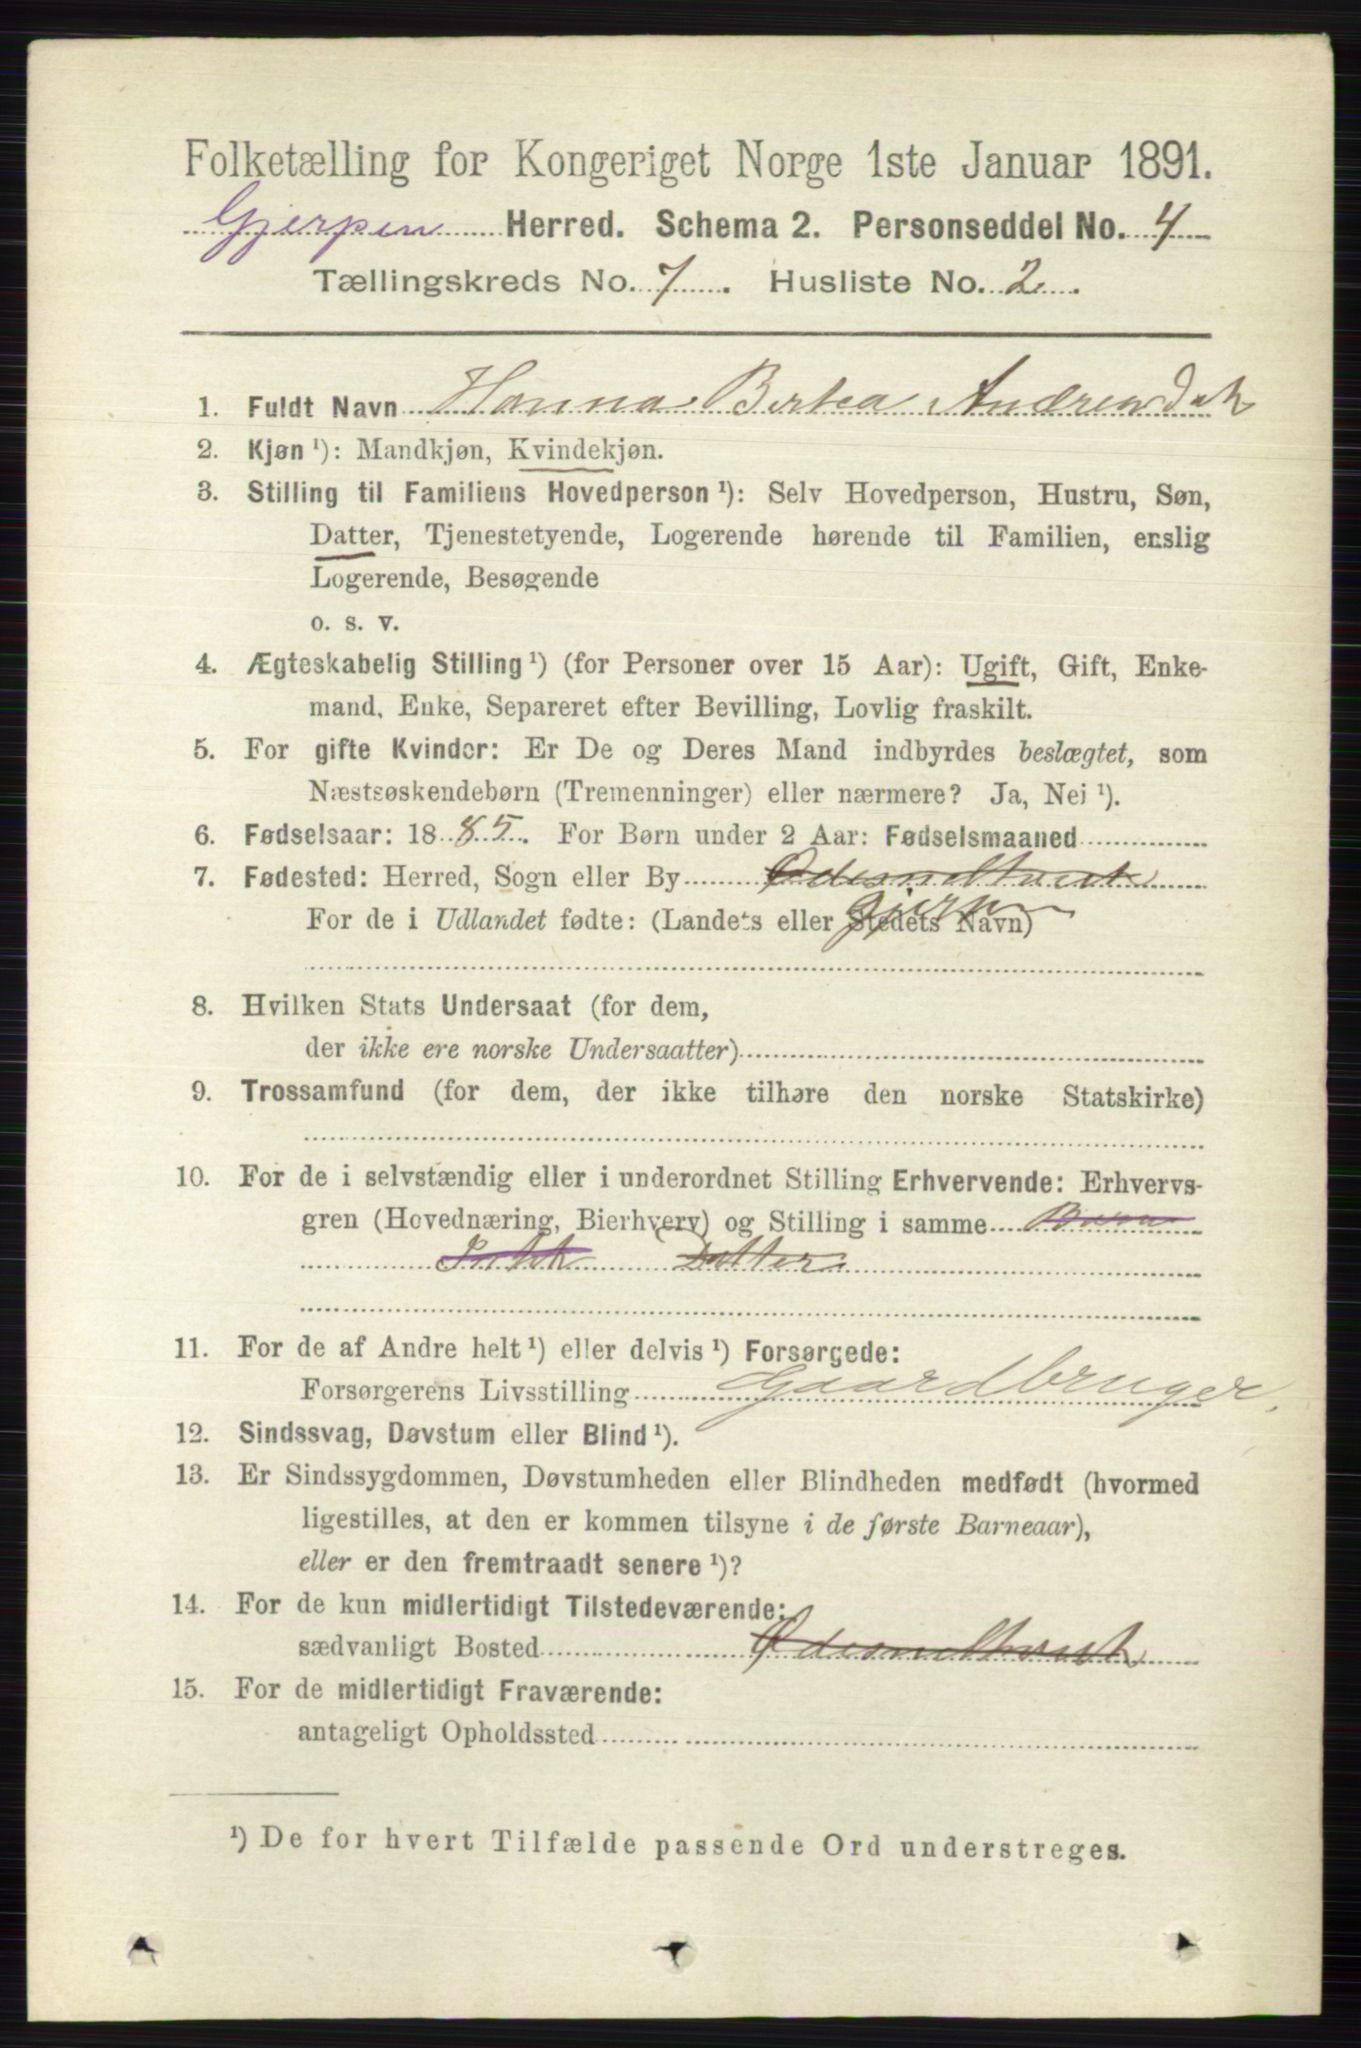 Folketælling for Kongeriget Norge 1ste Januar 1891.
Gjerpen Herred. Schema 2. Personseddel No. 4
Tællingskreds No. 7. Husliste No. 2.
1. Fuldt Navn Hanna Bertea Andrea
2. Kjøn ¹): Mandkjøn, Kvindekjøn.
3. Stilling til Familiens Hovedperson ¹): Selv Hovedperson, Hustru, Søn,
Datter, Tjenestetyende, Logerende hørende til Familien, enslig
Logerende, Besøgende
o. s. v.
4. Ægteskabelig Stilling ¹) (for Personer over 15 Aar): Ugift, Gift, Enke-
mand, Enke, Separeret efter Bevilling, Lovlig fraskilt.
5. For gifte Kvinder: Er De og Deres Mand indbyrdes beslægtet, som
Næstsøskendebørn (Tremenninger) eller nærmere? Ja, Nei ¹).
6. Fødselsaar: 1885. For Børn under 2 Aar: Fødselsmaaned
7. Fødested: Herred, Sogn eller By
For de i Udlandet fødte: (Landets eller Stedets Navn)
8. Hvilken Stats Undersaat (for dem,
der ikke ere norske Undersaatter)
9. Trossamfund (for dem, der ikke tilhøre den norske Statskirke)
10. For de i selvstændig eller i underordnet Stilling Erhvervende: Erhvervs-
gren (Hovednæring, Bierhverv) og Stilling i samme
Datter
11. For de af Andre helt ¹) eller delvis ¹) Forsørgede:
Forsørgerens Livsstilling Gaardbruger.
12. Sindssvag, Døvstum eller Blind ¹).
13. Er Sindssygdommen, Døvstumheden eller Blindheden medfødt (hvormed
ligestilles, at den er kommen tilsyne i de første Barneaar),
eller er den fremtraadt senere ¹)?
14. For de kun midlertidigt Tilstedeværende:
sædvanligt Bosted
15. For de midlertidigt Fraværende:
antageligt Opholdssted
¹) De for hvert Tilfælde passende Ord understreges.